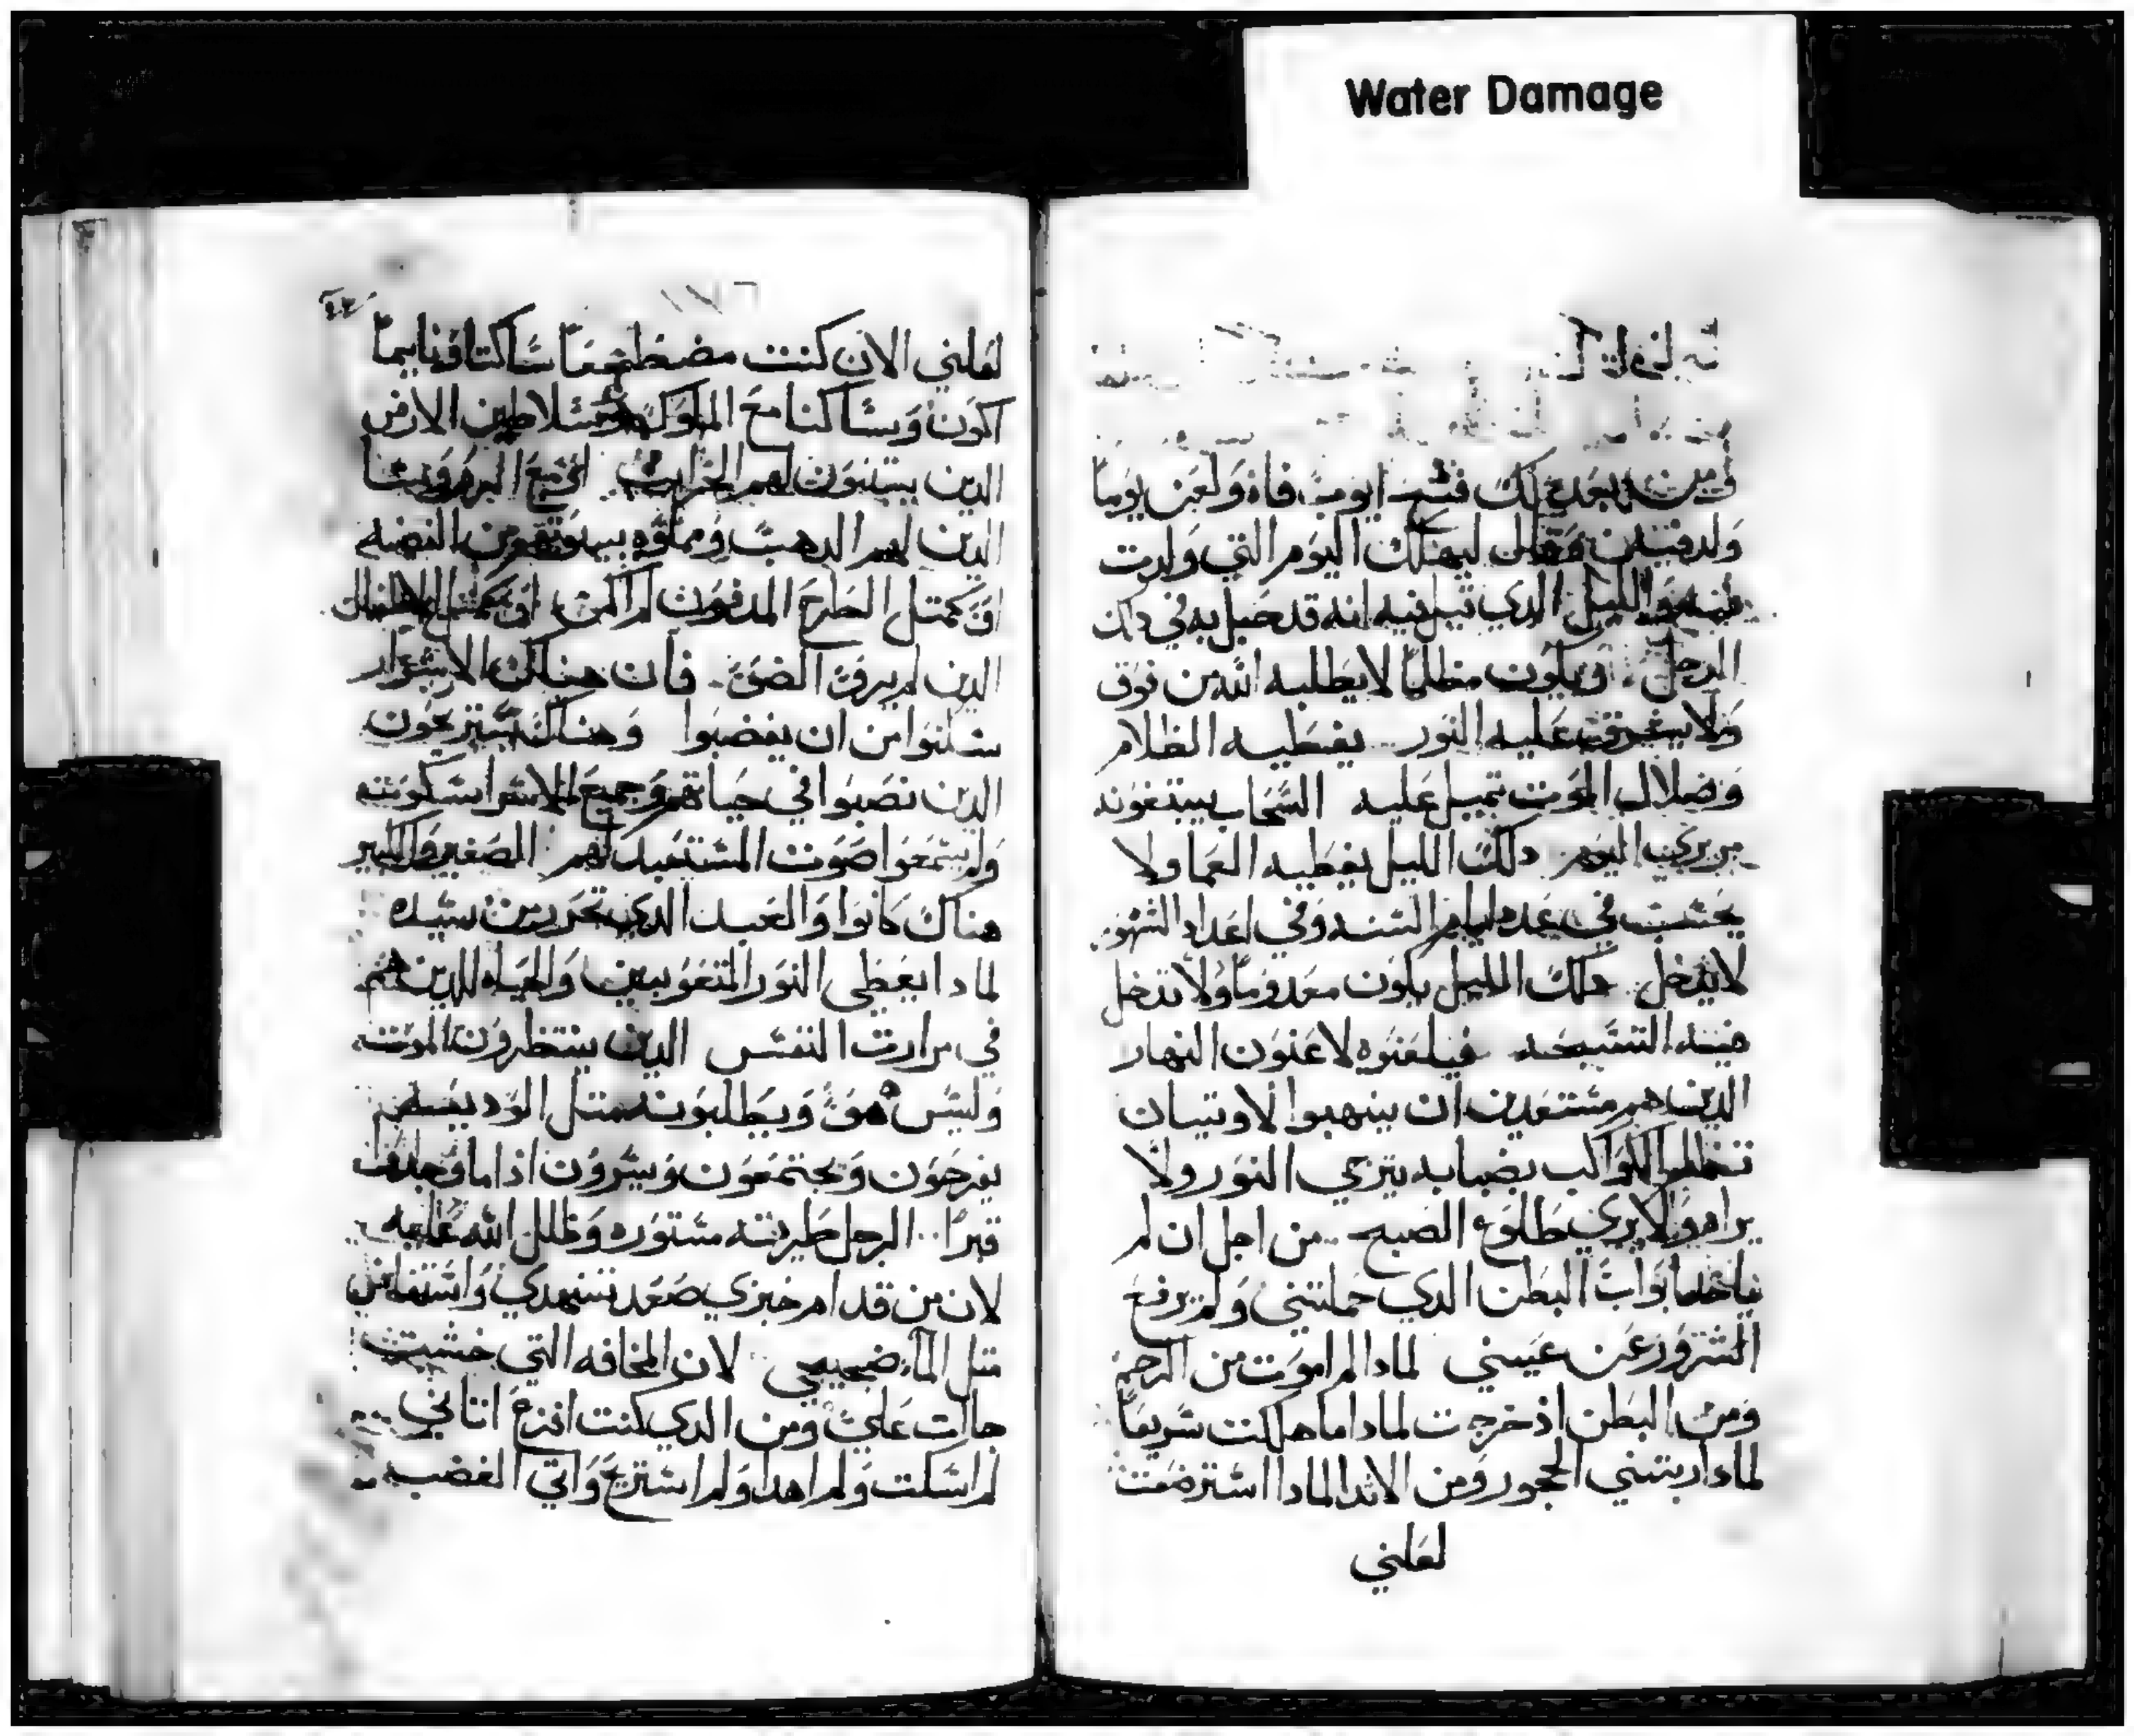 Water Damage
ومن بعد دلك فتح ايوب فاه ولعن يوما
ولد فيه وقال ليهلك اليوم التي ولدت
فيه والليل الدي قيل فيه انه قد حبل به في دلك
الرجل ويكون مظلما لا يطلبه الله من فوق
ولا يشرق عليه النور يغطيه الظلام
وضلال الموت تميل عليه السحاب يبتغونه
دلك الليل يغطيه العما ولا
يحسب في عدد ايام السنه وفي اعداد الشهور
لا يدخل دلك الليل يكون معدوما ولا تدخل
فيه التسبحه فيلعنوه لاعنون النهار
الدين هم مستعدين ان ينهبوا لاوتيان
تظلم الكواكب بضبابه يترجي النور ولا
يراه ولا يري طلوع الصبح من اجل ان لم
ياخد ابواب البطن الدي حملتني ولم يرفع
الشرور عن عيني لمادا لم اموت من الرحم
ومن البطن اذ خرجت لمادا ما هلكت سريعا
لمادا ربتني الحجور ومن الاتدا لمادا استرضعت
لعلني
لعلني الان كنت مضطجعا ساكتا ونايما
اكون وساكنا مع الملوك وسلاطين الارض
الدين يبتنون لهم الخراب او مع الروسا
الدين لهم الدهب ومملوه بيوتهم من الفضه
او كمتل الطرح المدفون لم اكن او كمتل الاطفال
الدين لم يروا الضو فان هناك الاشرار
سكنوا من ان يغضبوا وهناك يستريحون
الدين نصبوا في حياتهم وجميع الاسرا سكوته
ولم يسمعوا صوت المستعبد لهم الصغير والكبير
هناك كانوا والعبد الدي تحرر من سيده
لمادا يعطي النور المتعوبين والحياه للدين هم
في مرارت النفس الدين ينتظرون الموت
وليس هو ويطلبونه متل الود يسله
يفرحون ويجتمعون ويسرون اذا ما وجدوا
قبرا الرجل طريقه مستوره وظلل الله عليه
لان من قدام خبزي صعد تنهدي واستفاض
متل الما ضجيجي لان المخافه التي خشيت
جاات علي ومن الدي كنت افزع اتاني
لم اسكت ولم اهدا ولم استريح واتي الغضب